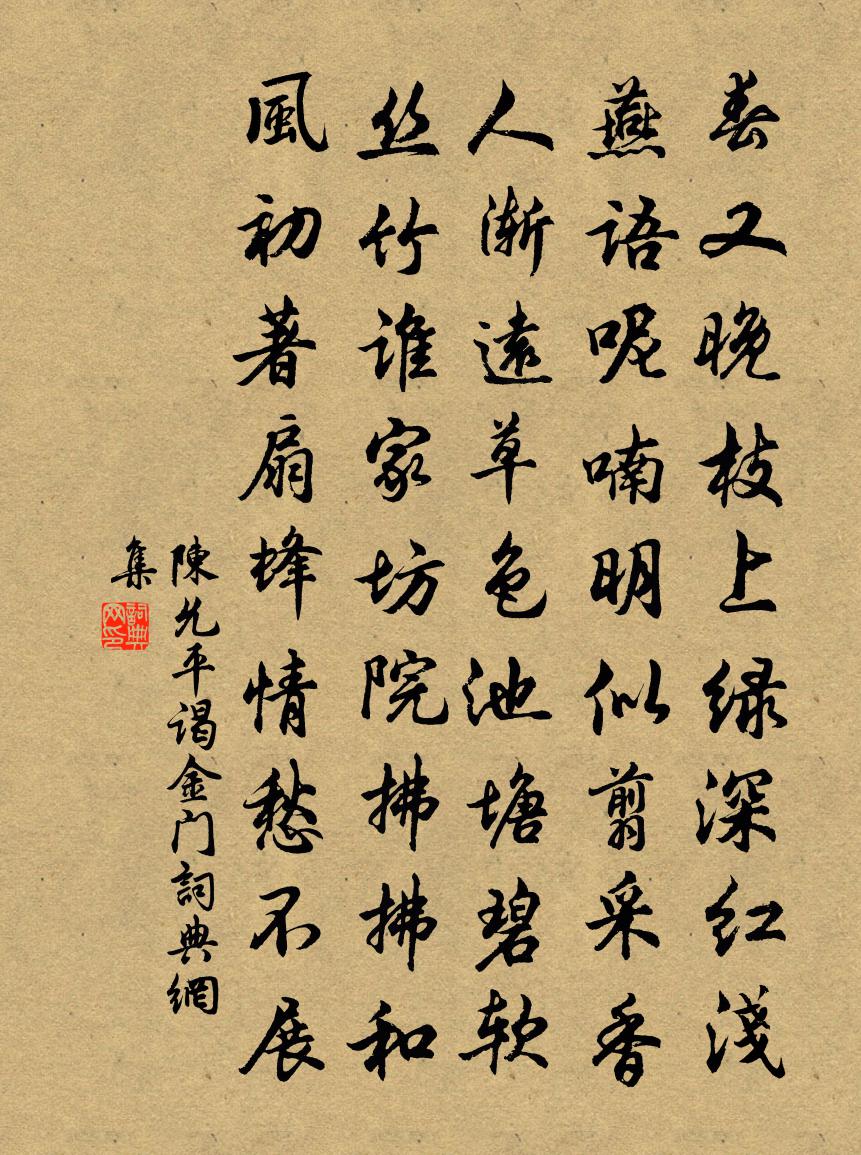 春又晚枝上绿深红淺
燕語呢喃明似翦采香
人渐遠草色池塘碧软
丝竹谁家坊院拂拂和
風初著扇蜂情愁不展
陳允平谒金门詞典網
集
詞典网印